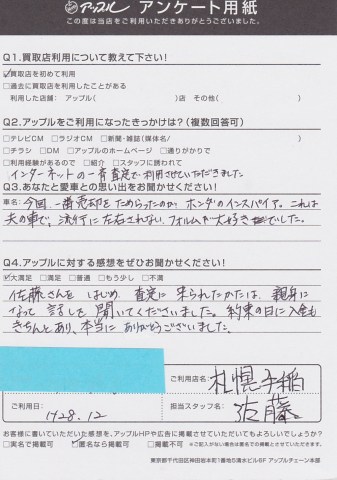 アップル アンケート用紙
この度は当店をご利用いただきありがとうございました。
Q1.買取店利用について教えて下さい!
☑買取店を初めて利用
□過去に買取店を利用したことがある
利用した店舗: アップル( )店 その他( )
Q2.アップルをご利用になったきっかけは?(複数回答可)
□テレビCM □ラジオCM □新聞・雑誌(媒体名/ )
□チラシ □DM □アップルのホームページ □通りがかりで
□利用経験があるので □紹介 □スタッフに誘われて
インターネットの一斉査定で利用させていただきました
Q3.あなたと愛車との思い出をお聞かせください!
車名: 今回、一番売却をためらったのが ホンダのインスパイア。これは
夫の車で、流行に左右されない フォルムが大好きでした。
Q4.アップルに対する感想をぜひお聞かせください!
☑大満足 □満足 □普通 □もう少し □不満
佐藤さんを はじめ、査定に 来られたかたは、親身に
なって 話しを 聞いてくださいました。約束の日に入金も
きちんとあり、本当に ありがとうございました。
ご利用店名: 札幌手稲
ご利用日: H28.12 担当スタッフ名: 佐藤
お客様に書いていただいた感想を、アップルHPや広告に掲載させていただいてもよろしいでしょうか?
□実名で掲載可 ☑匿名なら掲載可 □掲載不可 ※ご記入がない場合は匿名で掲載させていただくことがございます。
東京都千代田区神田岩本町1番地5清水ビル6F アップルチェーン本部